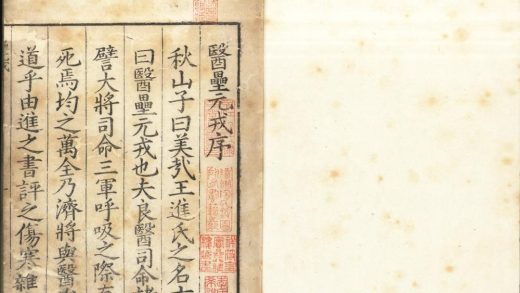 醫壘元戎序
秋山子曰美哉王進氏之名
曰醫壘元戎也夫良醫司命
譬大將司命三軍呼吸之際
死焉均之萬全乃濟將與醫
道乎由進之書評之傷寒雜